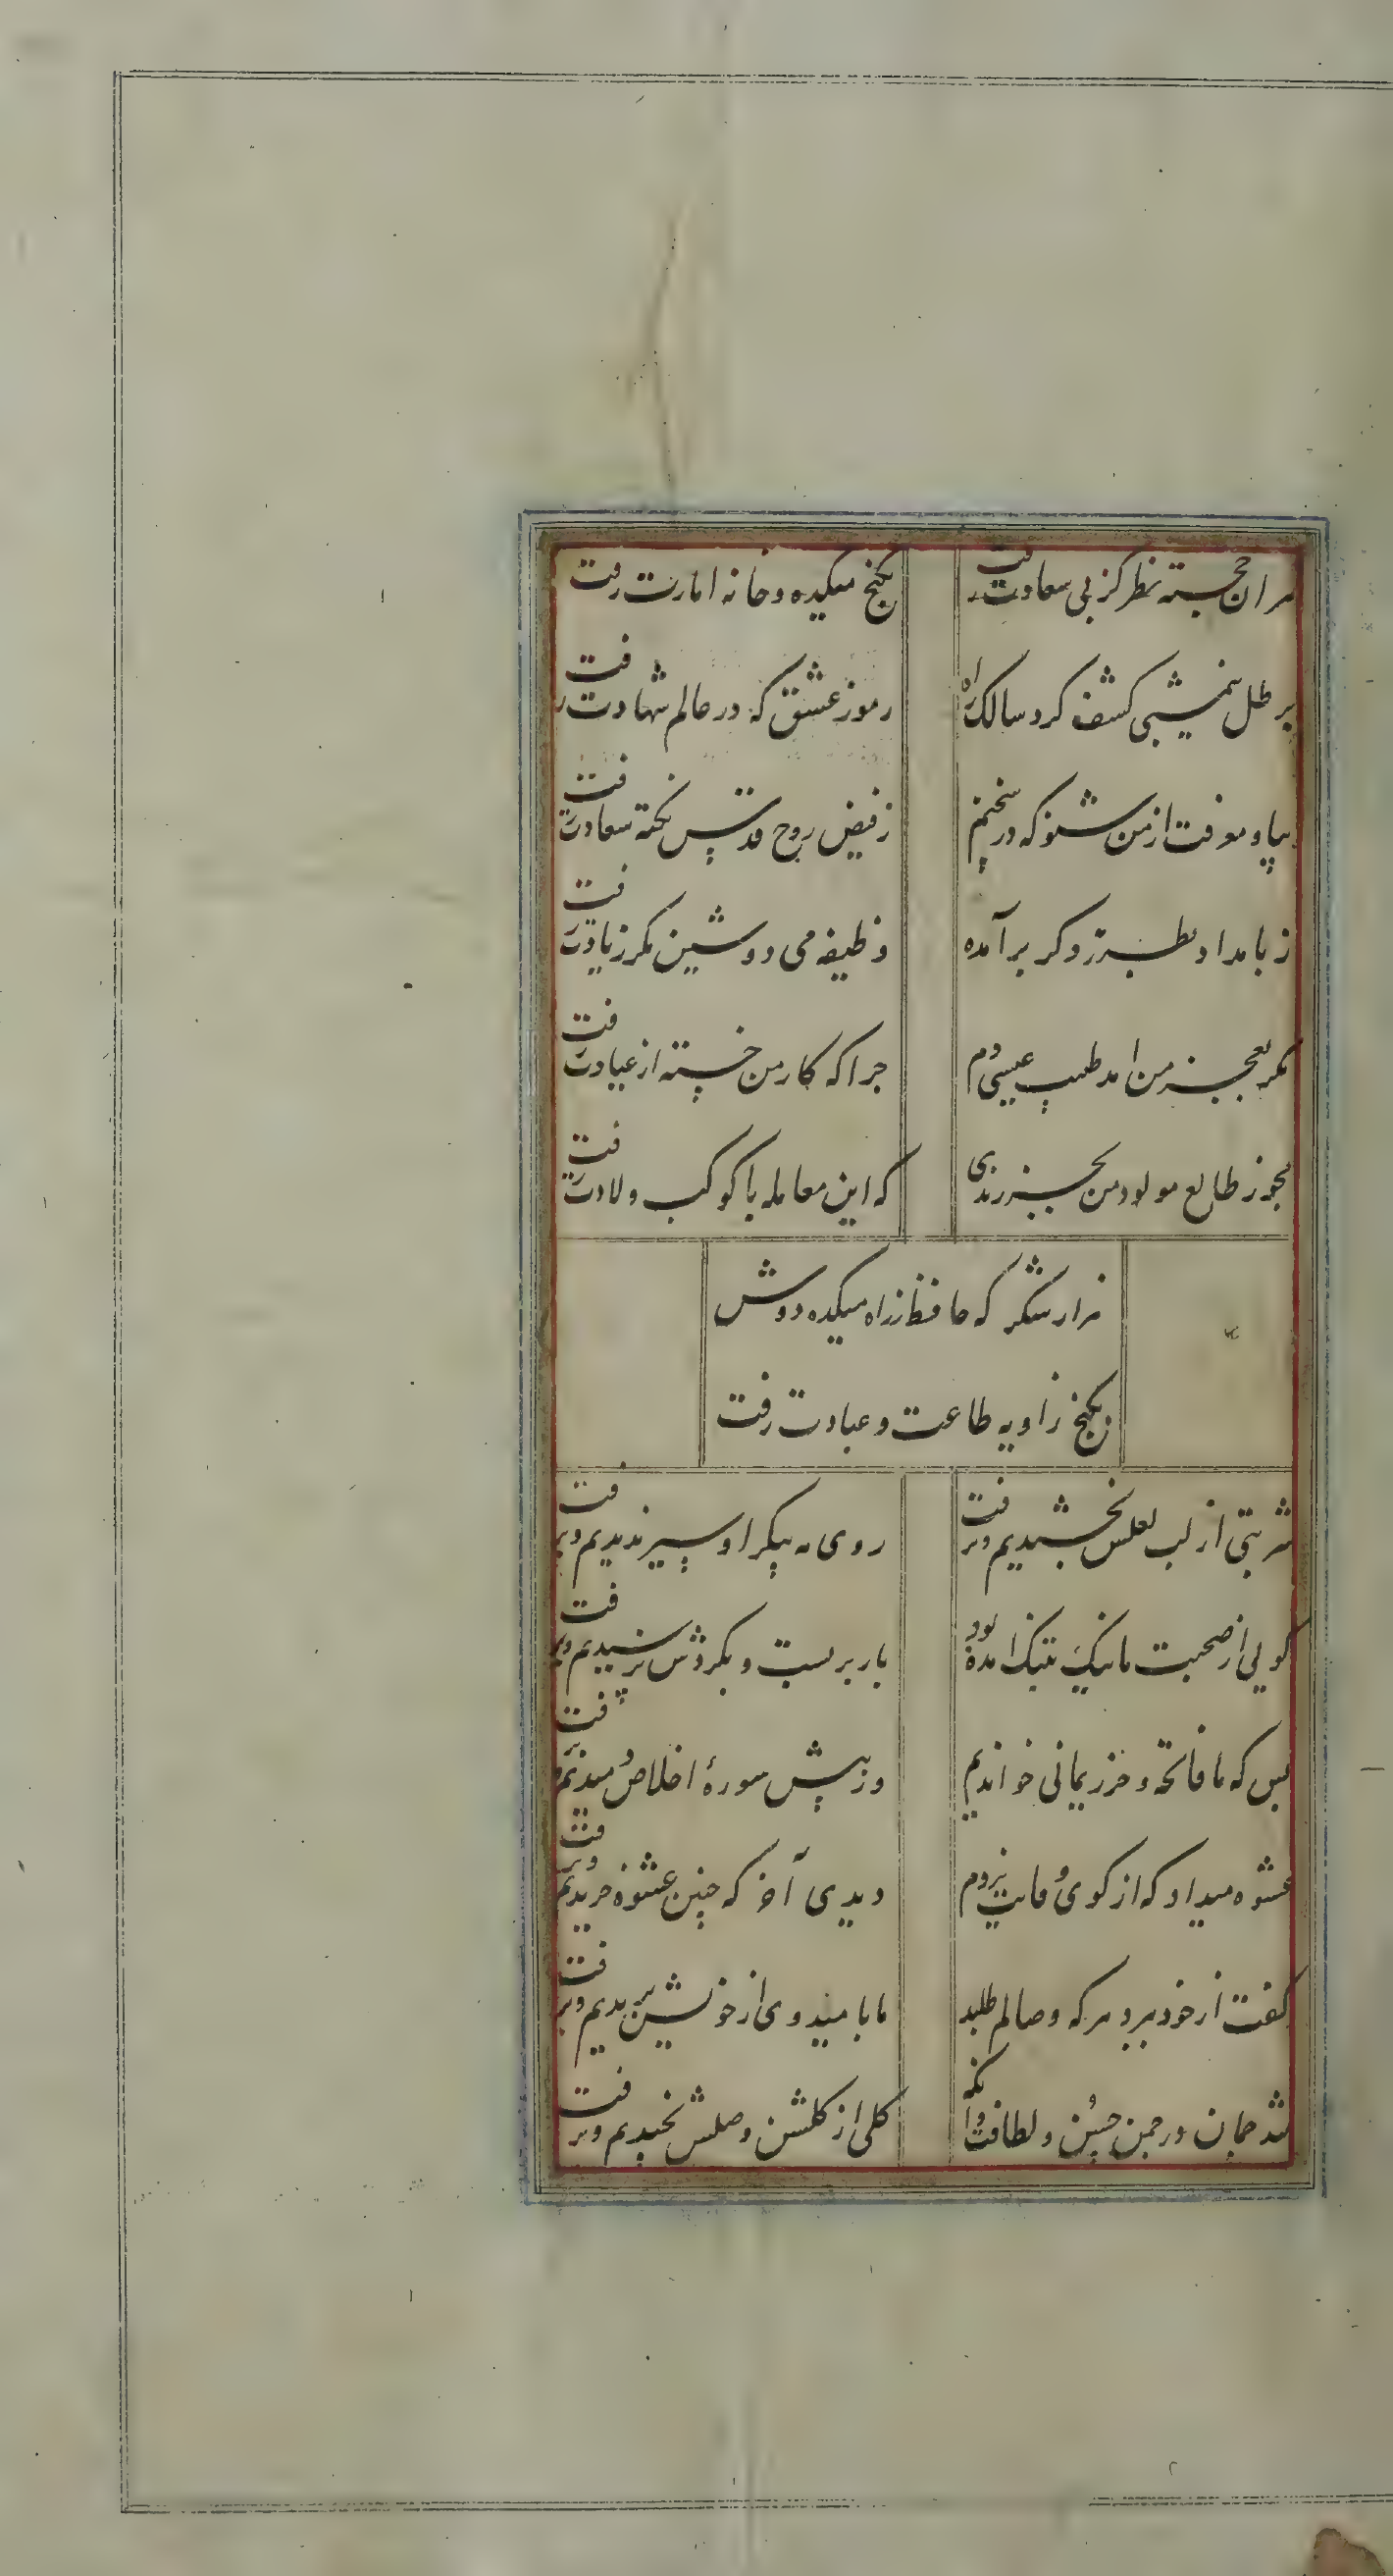 هر آن خجسته نظر کز پی سعادت رفت بکنج میکده و خانه ارادت رفت
ز رطل نیمشبی کشف کرد سالک راه رموز عشق که در عالم شهادت رفت
بیا و معرفت از من شنو که در سخنم ز فیض روح قدس نکته سعادت رفت
ز بامداد بطرز دکر برآمده وظیفه می دوشین مکر زیادت رفت
مکر بمعجز من آمد طبیب عیسی دم چرا که کار من خسته از عیادت رفت
مجو ز طالع مولود من بجز رندی که این معامله با کوکب ولادت رفت
هزار شکر که حافظ ز راه میکده دوش
بکنج زاویه طاعت و عبادت رفت
شربتی از لب لعلش نچشیدیم و برفت روی مه پیکر او سیر ندیدیم و برفت
کویی از صحبت ما نیک بتنک آمده بود بار بربست و بکردش نرسیدیم و برفت
بس که ما فاتحه و حرز یمانی خواندیم وز پیش سوره اخلاص دمیدیم و برفت
عشوه میداد که از کوی وفایت نروم دیدی آخر که چنین عشوه خریدیم و برفت
کفت از خود ببرد هر که وصالم طلبد ما بامید وی از خویش بریدیم و برفت
شد چمان در چمن حسن و لطافت وانکه کلی از کلشن وصلش نچیدیم و برفت